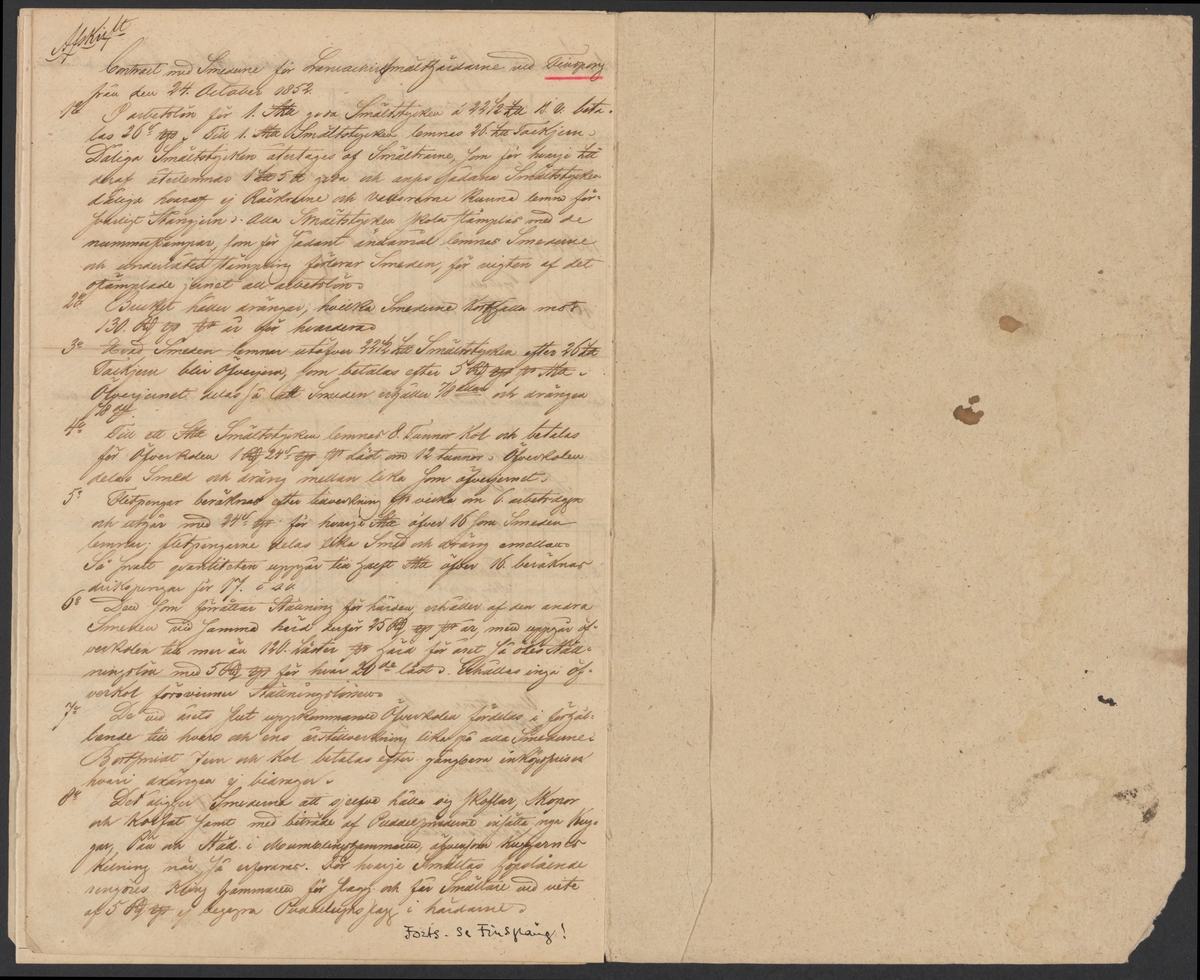 Afskrift
Contract med Smederne för Lancashiresmälthärdarne vid Finspong
från den 24. October 1852.
1º I arbetslön för 1. goda Smältstycken à 22 1/2 beta-
las 26 . Till 1. Smältstycken lemnas 26. Tackjern.
Dåliga Smältstycken återtages af Smältarne, som för hvarje
deraf återlemnas 1 5 goda och anses sådana Smältstycken
dåliga hvaraf ej Räckarne och Valsarne kunna lemna för-
svarligt Stångjern. Alla Smältstycken skola stämplas med de
nummerstämplar, som för sådant ändamål lemnas Smederne
och underlåten stämpling förlorar Smeden, för vigten af det
ostämplade jernet all arbetslön.
2º Bruket håller drängar, hvilka Smederne kostfälla mot
130. år för hvardera
3º Hvad Smeden lemnar utöfver 22 1/2 Smältstycken efter 26
Tackjern blir Öfverjern, som betalas efter 5
Öfverjernet delas så att Smeden erhåller och drängen
4º Till ett Smältstycken lemnas 8. Tunnor Kol och betalas
för Öfverkolen 1 24 läst om 12 tunnor. Öfverkolen
delas Smed och dräng mellan lika som öfverjernet.
5º Flitpengar beräknas efter tillverkning vecka om 6. arbetsdagar
och utgår med 24 för hvarje öfver 16 som Smeden
lemnar; flitpengarne delas lika Smed och dräng emellan
Så snart qvantiteten uppgår till hälft öfver 16. beräknas
drikspengar för 17.
6º Den som förrättar Ställning för härden, erhåller af den andra
Smeden vid samma härd derför 25 år, men uppgår öf-
verkolen till mer än 120. Läster härd för året så ökes Ställ-
ningslön med 5 för hvar 20de läst. Erhållas inga öf-
verkol försvinner Ställningslönen
7º De vid årets slut uppkommande Öfverkolen fördelas i förhål-
lande till hvars och ens årstillverkning lika på alla Smederne.
Bortsmidt Jern och Kol betalas efter gångbara inköpspriser
hvari drängen ej bidrager.
8º Det åligger Smederne att sjelfve hålla sig skoflar, Skopor
och Kolfat samt med biträde af Puddelsmederne insätta nya
och Städ i Mumblingshammaren, äfvensom
kilning när så erfordras. För hvarje Smältas
rengöres kring hammaren för slagg och får Smältare vid vite
af 5 ej begagna Puddelugns slagg i härdarne.
Forts. se Finspång!